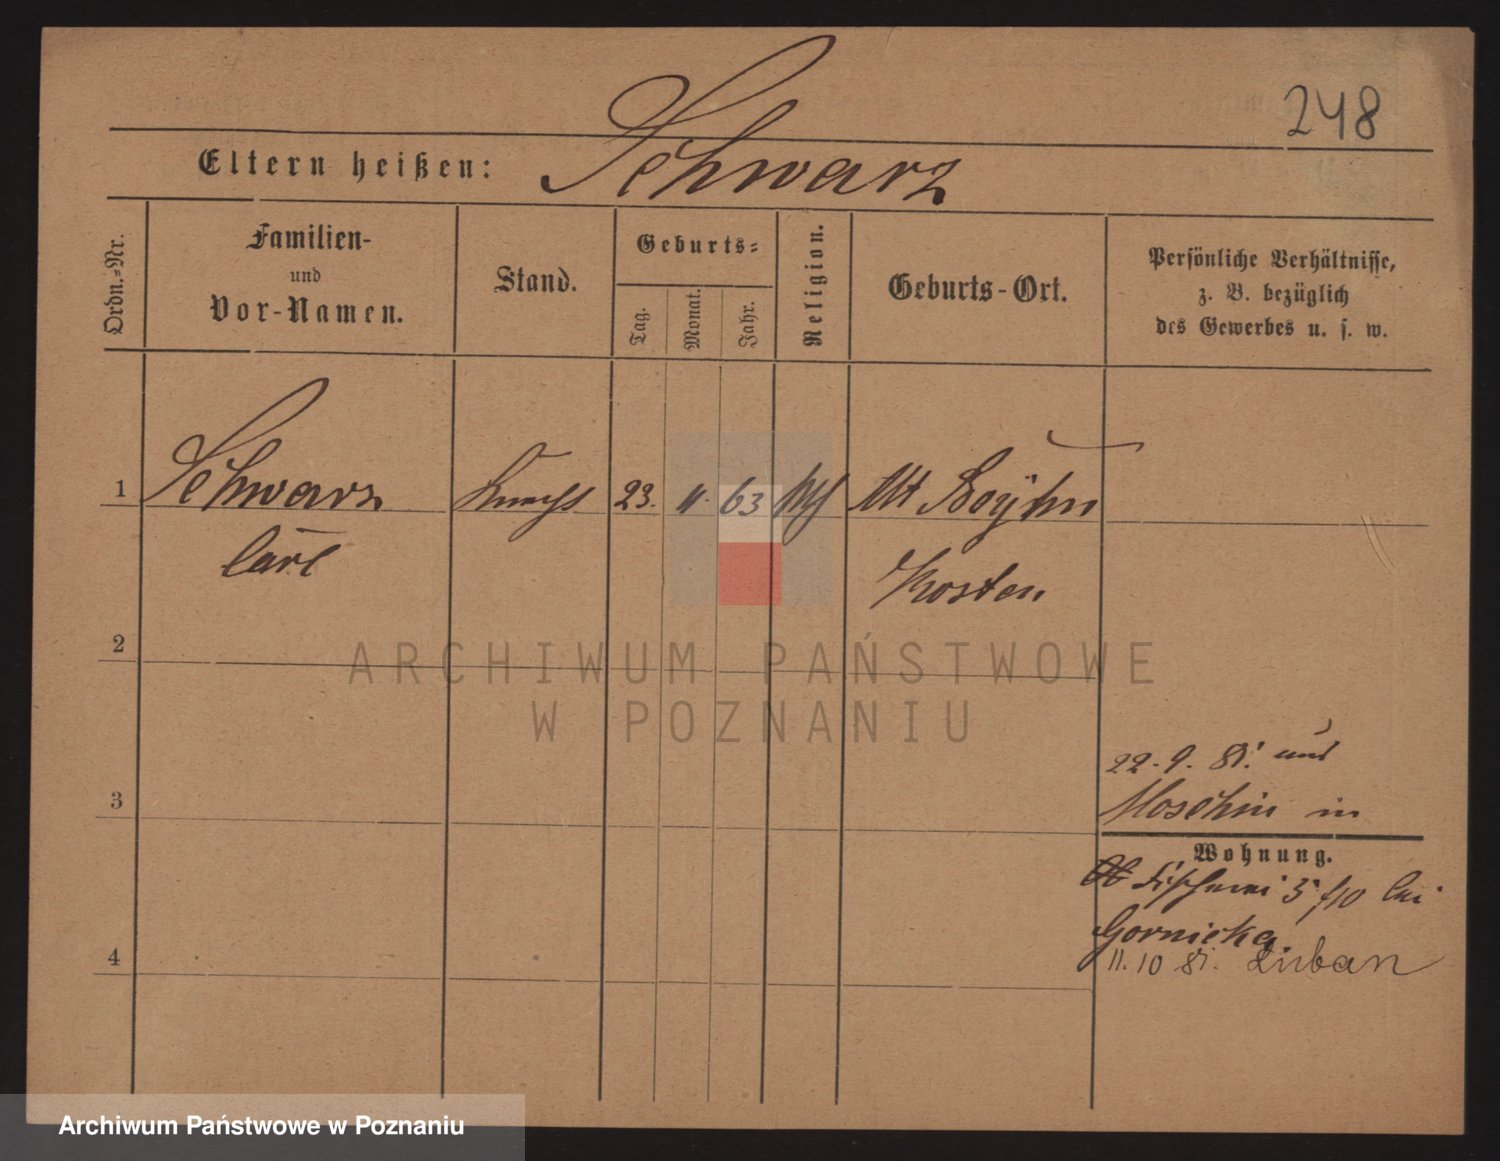 248
Eltern heißen: Schwarz
Ordn.=Nr.
Familien-
und
Vor-Namen.
Stand.
Geburts=
Tag.
Monat.
Jahr.
Religion.
Geburts-Ort.
Persönliche Verhältnisse,
z. B. bezüglich
des Gewerbes u. s. w.
1 Schwarz 23. 11. 63 Alt
Carl
Kosten
2
ARCHIWUM PAŃSTWOWE
W POZNANIU
22. 9. 81. aus
3
Moschin in
Wohnung.
Fischerei 5 /10 bei
Gornicka
4
11. 10 81. Luban
Archiwum Państwowe w Poznaniu